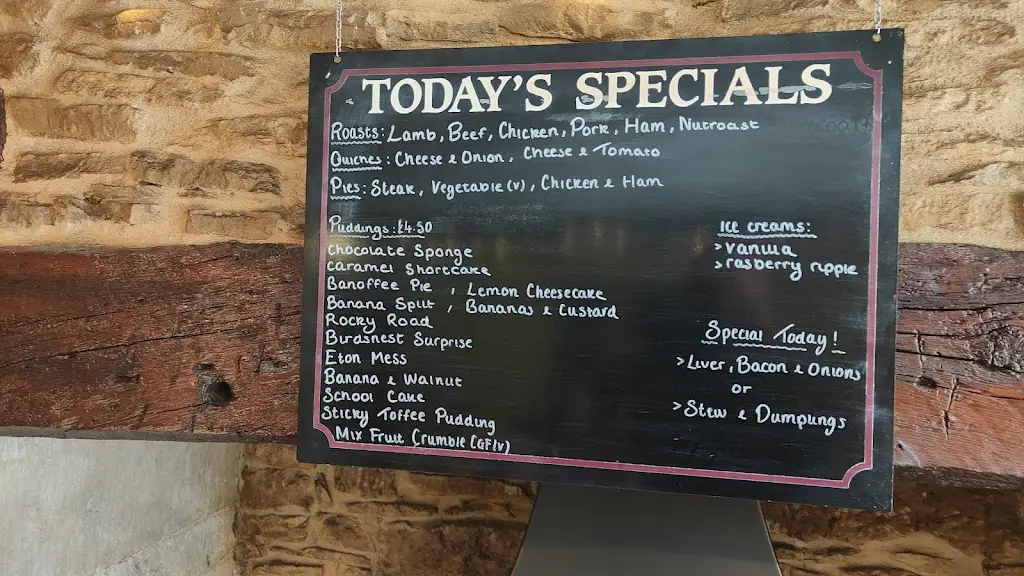 TODAY'S SPECIALS
Roasts: Lamb, Beef, Chicken, Pork, Ham, Nutroast
Quiches: Cheese & Onion, Cheese & Tomato
Pies: Steak, Vegetable (v), Chicken & Ham
Puddings: £4.50
Chocolate Sponge
Caramel Shortcake
Banoffee Pie , Lemon Cheesecake
Banana Split , Bananas & Custard
Rocky Road
Birdsnest Surprise
Eton Mess
Banana & Walnut
School Cake
Sticky Toffee Pudding
Mix Fruit Crumble (GF/v)
Ice creams:
> Vanilla
> rasberry ripple
Special Today!
> Liver, Bacon & Onions
or
> Stew & Dumplings